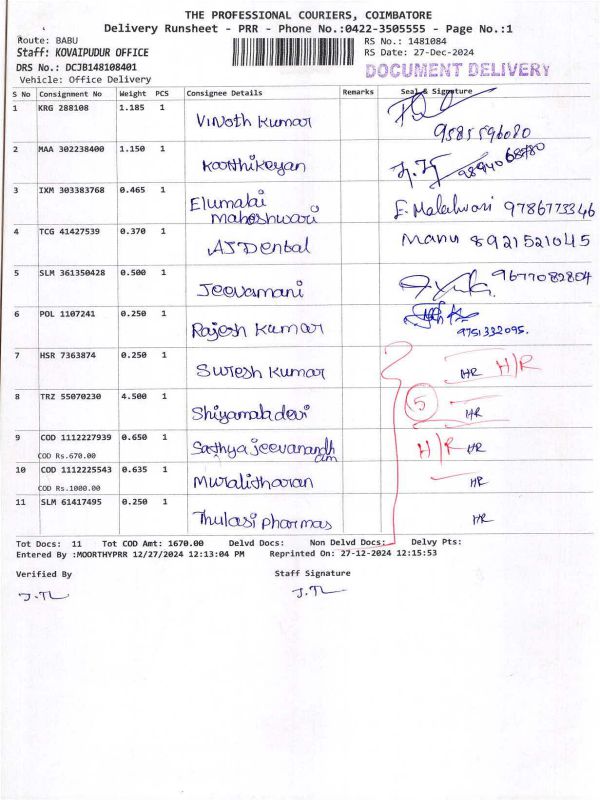 THE PROFESSIONAL COURIERS, COIMBATORE
Delivery Runsheet - PRR - Phone No.:0422-3505555 - Page No.:1
Route: BABU RS No.: 1481084
Staff: KOVAIPUDUR OFFICE RS Date: 27-Dec-2024
DRS No.: DCJB148108401 DOCUMENT DELIVERY
Vehicle: Office Delivery
S No Consignment No Weight PCS Consignee Details Remarks Seal & Signature
1 KRG 288108 1.185 1 Vinoth Kumar 9585596080
2 MAA 302238400 1.150 1 Karthikeyan
3 IXM 303383768 0.465 1 Elumalai
Maheshwari E. Malahwari 9786773346
4 TCG 41427539 0.370 1 AJ Dental Manu 8921521045
5 SLM 361350428 0.500 1 Jeevamani 9677082804
6 POL 1107241 0.250 1 Rajesh Kumar 9751332095.
7 HSR 7363874 0.250 1 Suresh Kumar HR H/R
8 TRZ 55070230 4.500 1 Shiyamaladevi 5 HR
9 COD 1112227939 0.650 1 Sathyajeevanandh
am H/R HR
COD Rs.670.00
10 COD 1112225543 0.635 1 Muralitharan HR
COD Rs.1000.00
11 SLM 61417495 0.250 1 Thulasi Pharmas HR
Tot Docs: 11 Tot COD Amt: 1670.00 Delvd Docs: Non Delvd Docs: Delvy Pts:
Entered By :MOORTHYPRR 12/27/2024 12:13:04 PM Reprinted On: 27-12-2024 12:15:53
Verified By Staff Signature